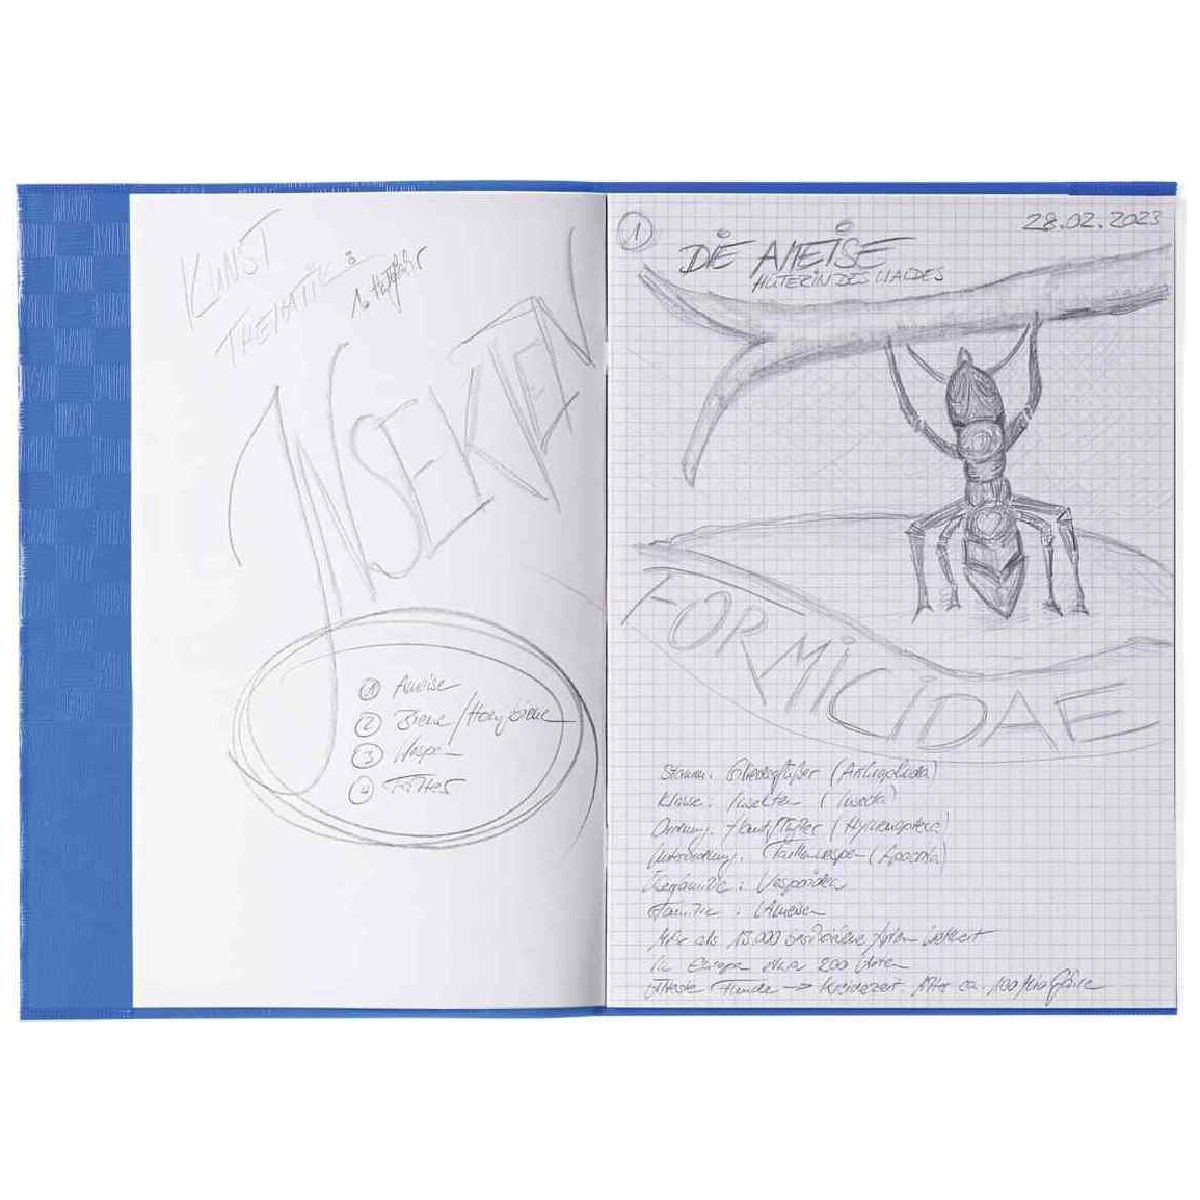 KUNST
THEMATIK:
INSEKTEN
1 Ameise
2 Biene/Honigbiene
3 Wespen
4 Falter
1
28.02.2023
DIE AMEISE
HÜTERIN DES WALDES
FORMICIDAE
Stamm: Gliederfüßer (Arthropoda)
Klasse: Insekten (Insecta)
Ordnung: Hautflügler (Hymenoptera)
Unterordnung: Taillenwespen (Apocrita)
Überfamilie: Vespoidea
Familie: Ameisen
Mehr als 13.000 beschriebene Arten weltweit
In Europa etwa 200 Arten
Älteste Funde → Kreidezeit Alter ca. 100 Mio Jahre